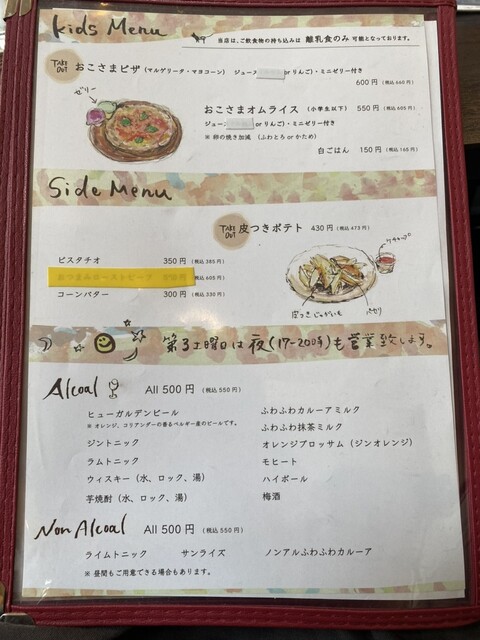 Kids Menu
当店は、ご飲食物の持ち込みは 離乳食のみ 可能となっております。
TAKE OUT おこさまピザ (マルゲリータ・マヨコーン) ジュー or りんご)・ミニゼリー付き
600円 (税込 660円)
ゼリー
おこさまオムライス (小学生以下) 550円 (税込 605円)
ジュー or りんご)・ミニゼリー付き
※ 卵の焼き加減 (ふわとろ or かため)
白ごはん 150円 (税込 165円)
Side Menu
TAKE OUT 皮つきポテト 430円 (税込 473円)
ケチャップ
ピスタチオ 350円 (税込 385円)
おつまみローストビーフ (税込 605円)
コーンバター 300円 (税込 330円)
皮つきじゃがいも パセリ
第3土曜日は夜(17-20時)も営業致します。
Alcoal All 500円 (税込 550円)
ヒューガルデンビール ふわふわカルーアミルク
※ オレンジ、コリアンダーの香るベルギー産のビールです。
ふわふわ抹茶ミルク
ジントニック オレンジブロッサム (ジンオレンジ)
ラムトニック モヒート
ウィスキー (水、ロック、湯) ハイボール
芋焼酎 (水、ロック、湯) 梅酒
Non Alcoal All 500円 (税込 550円)
ライムトニック サンライズ ノンアルふわふわカルーア
※ 昼間もご用意できる場合もあります。